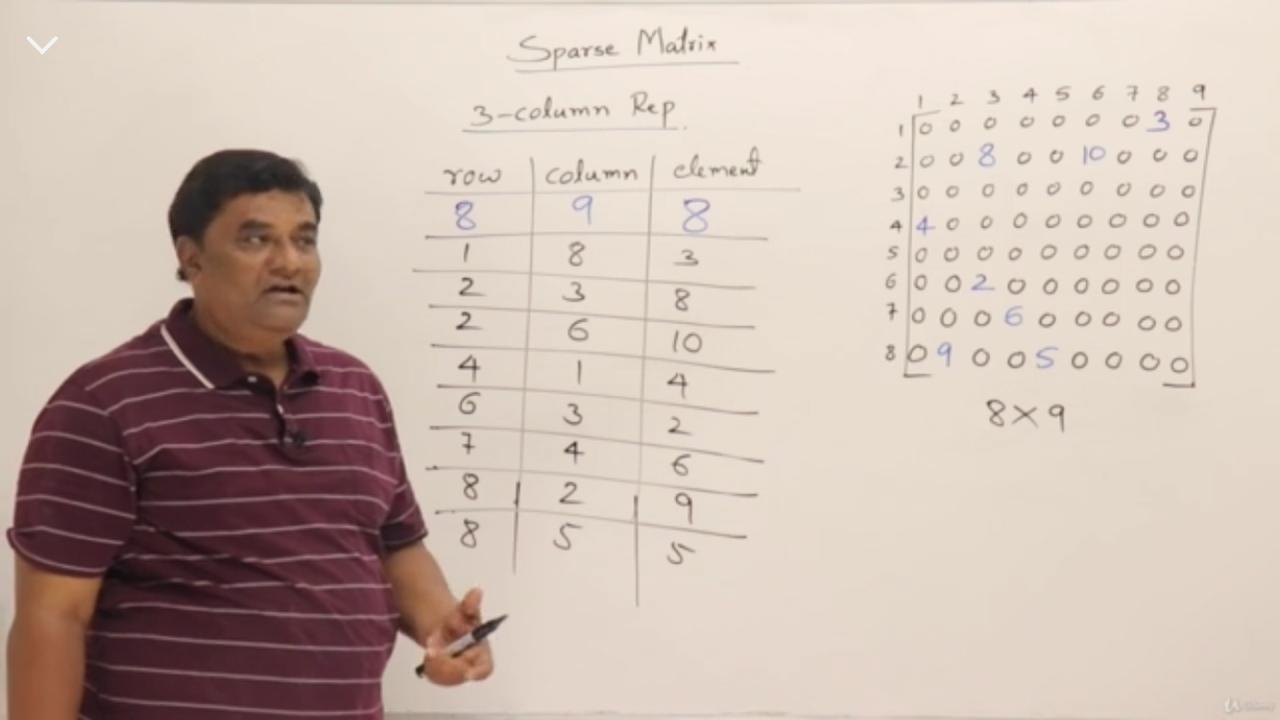 Sparse Matrix
3-column Rep.
row column element
8 9 8
1 8 3
2 3 8
2 6 10
4 1 4
6 3 2
7 4 6
8 2 9
8 5 5
1 2 3 4 5 6 7 8 9
1 0 0 0 0 0 0 0 3 0
2 0 0 8 0 0 10 0 0 0
3 0 0 0 0 0 0 0 0 0
4 4 0 0 0 0 0 0 0 0
5 0 0 0 0 0 0 0 0 0
6 0 0 2 0 0 0 0 0 0
7 0 0 0 6 0 0 0 0 0
8 0 9 0 0 5 0 0 0 0
8×9
Udemy